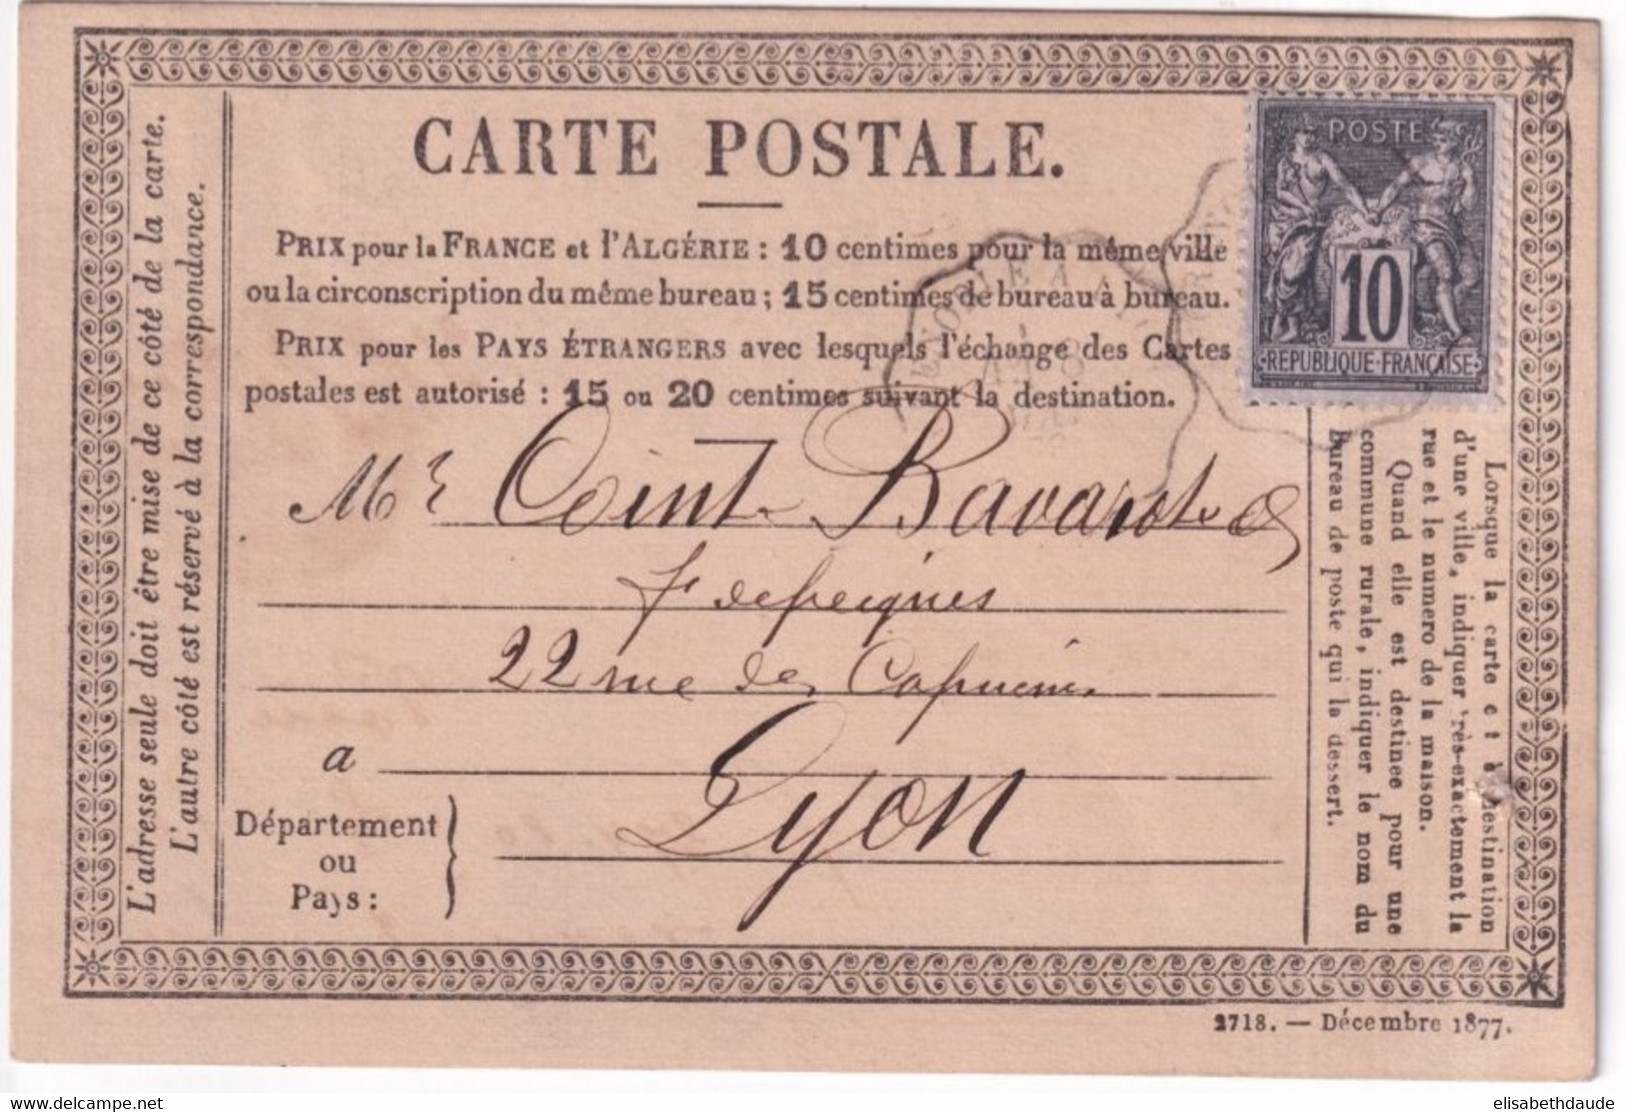 CARTE POSTALE.
PRIX pour la FRANCE et l'ALGÉRIE : 10 centimes pour la même ville
ou la circonscription du même bureau ; 15 centimes de bureau à bureau.
PRIX pour les PAYS ÉTRANGERS avec lesquels l'échange des Cartes
postales est autorisé : 15 ou 20 centimes suivant la destination.
POSTE
10
RÉPUBLIQUE·FRANÇAISE
L'adresse seule doit être mise de ce côté de la carte.
L'autre côté est réservé à la correspondance.
Mr Coint Bavarot &
f. de peignes
22 rue des Capucins
a Lyon
Département
ou
Pays :
Lorsque la carte e t à destination
d'une ville, indiquer très-exactement la
rue et le numero de la maison.
Quand elle est destinee pour une
commune rurale, indiquer le nom du
Bureau de poste qui la dessert.
2718. — Décembre 1877.
delcampe.net
elisabethdaude